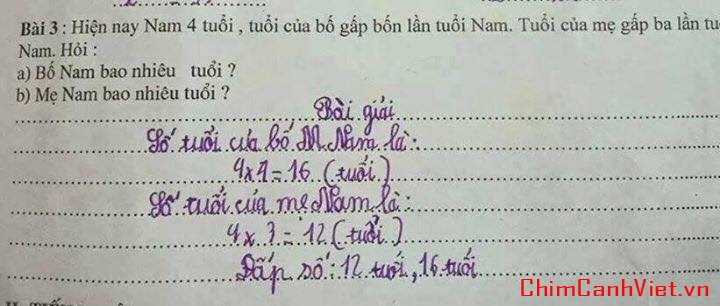 Bài 3 : Hiện nay Nam 4 tuổi , tuổi của bố gấp bốn lần tuổi Nam. Tuổi của mẹ gấp ba lần tu
Nam. Hỏi :
a) Bố Nam bao nhiêu tuổi ?
b) Mẹ Nam bao nhiêu tuổi ?
Bài giải
Số tuổi của bố Nam là:
4 x 4 = 16 (tuổi)
Số tuổi của mẹ Nam là:
4 x 3 = 12 (tuổi)
Đấp số: 12 tuổi, 16 tuổi
ChimCanhViet.vn